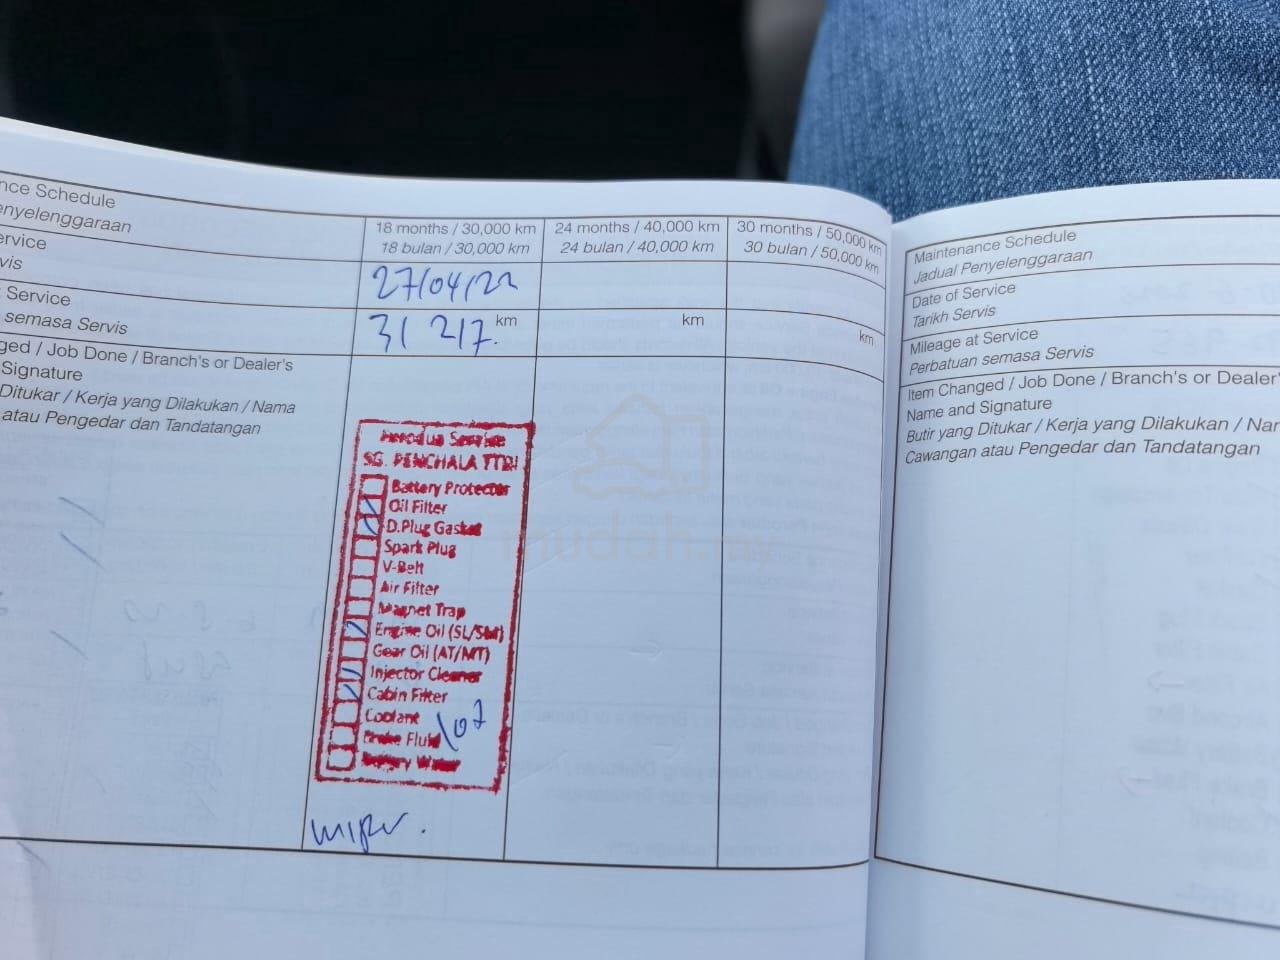 nce Schedule
enyelenggaraan
18 months / 30,000 km
18 bulan / 30,000 km
24 months / 40,000 km
24 bulan / 40,000 km
30 months / 50,000 km
30 bulan / 50,000 km
ervice
vis
27/04/22
Service
semasa Servis
31 217. km
km
km
ged / Job Done / Branch's or Dealer's
Signature
Ditukar / Kerja yang Dilakukan / Nama
atau Pengedar dan Tandatangan
Perodua Service
SG. PENCHALA TTDI
Battery Protector
Oil Filter
D.Plug Gasket
Spark Plug
V-Belt
Air Filter
Magnet Trap
Engine Oil (SL/SM)
Gear Oil (AT/MT)
Injector Cleaner
Cabin Filter
Coolant
Brake Fluid
Battery Water
wiper.
mudah.my
Maintenance Schedule
Jadual Penyelenggaraan
Date of Service
Tarikh Servis
Mileage at Service
Perbatuan semasa Servis
Item Changed / Job Done / Branch's or Dealer'
Name and Signature
Butir yang Ditukar / Kerja yang Dilakukan / Nar
Cawangan atau Pengedar dan Tandatangan